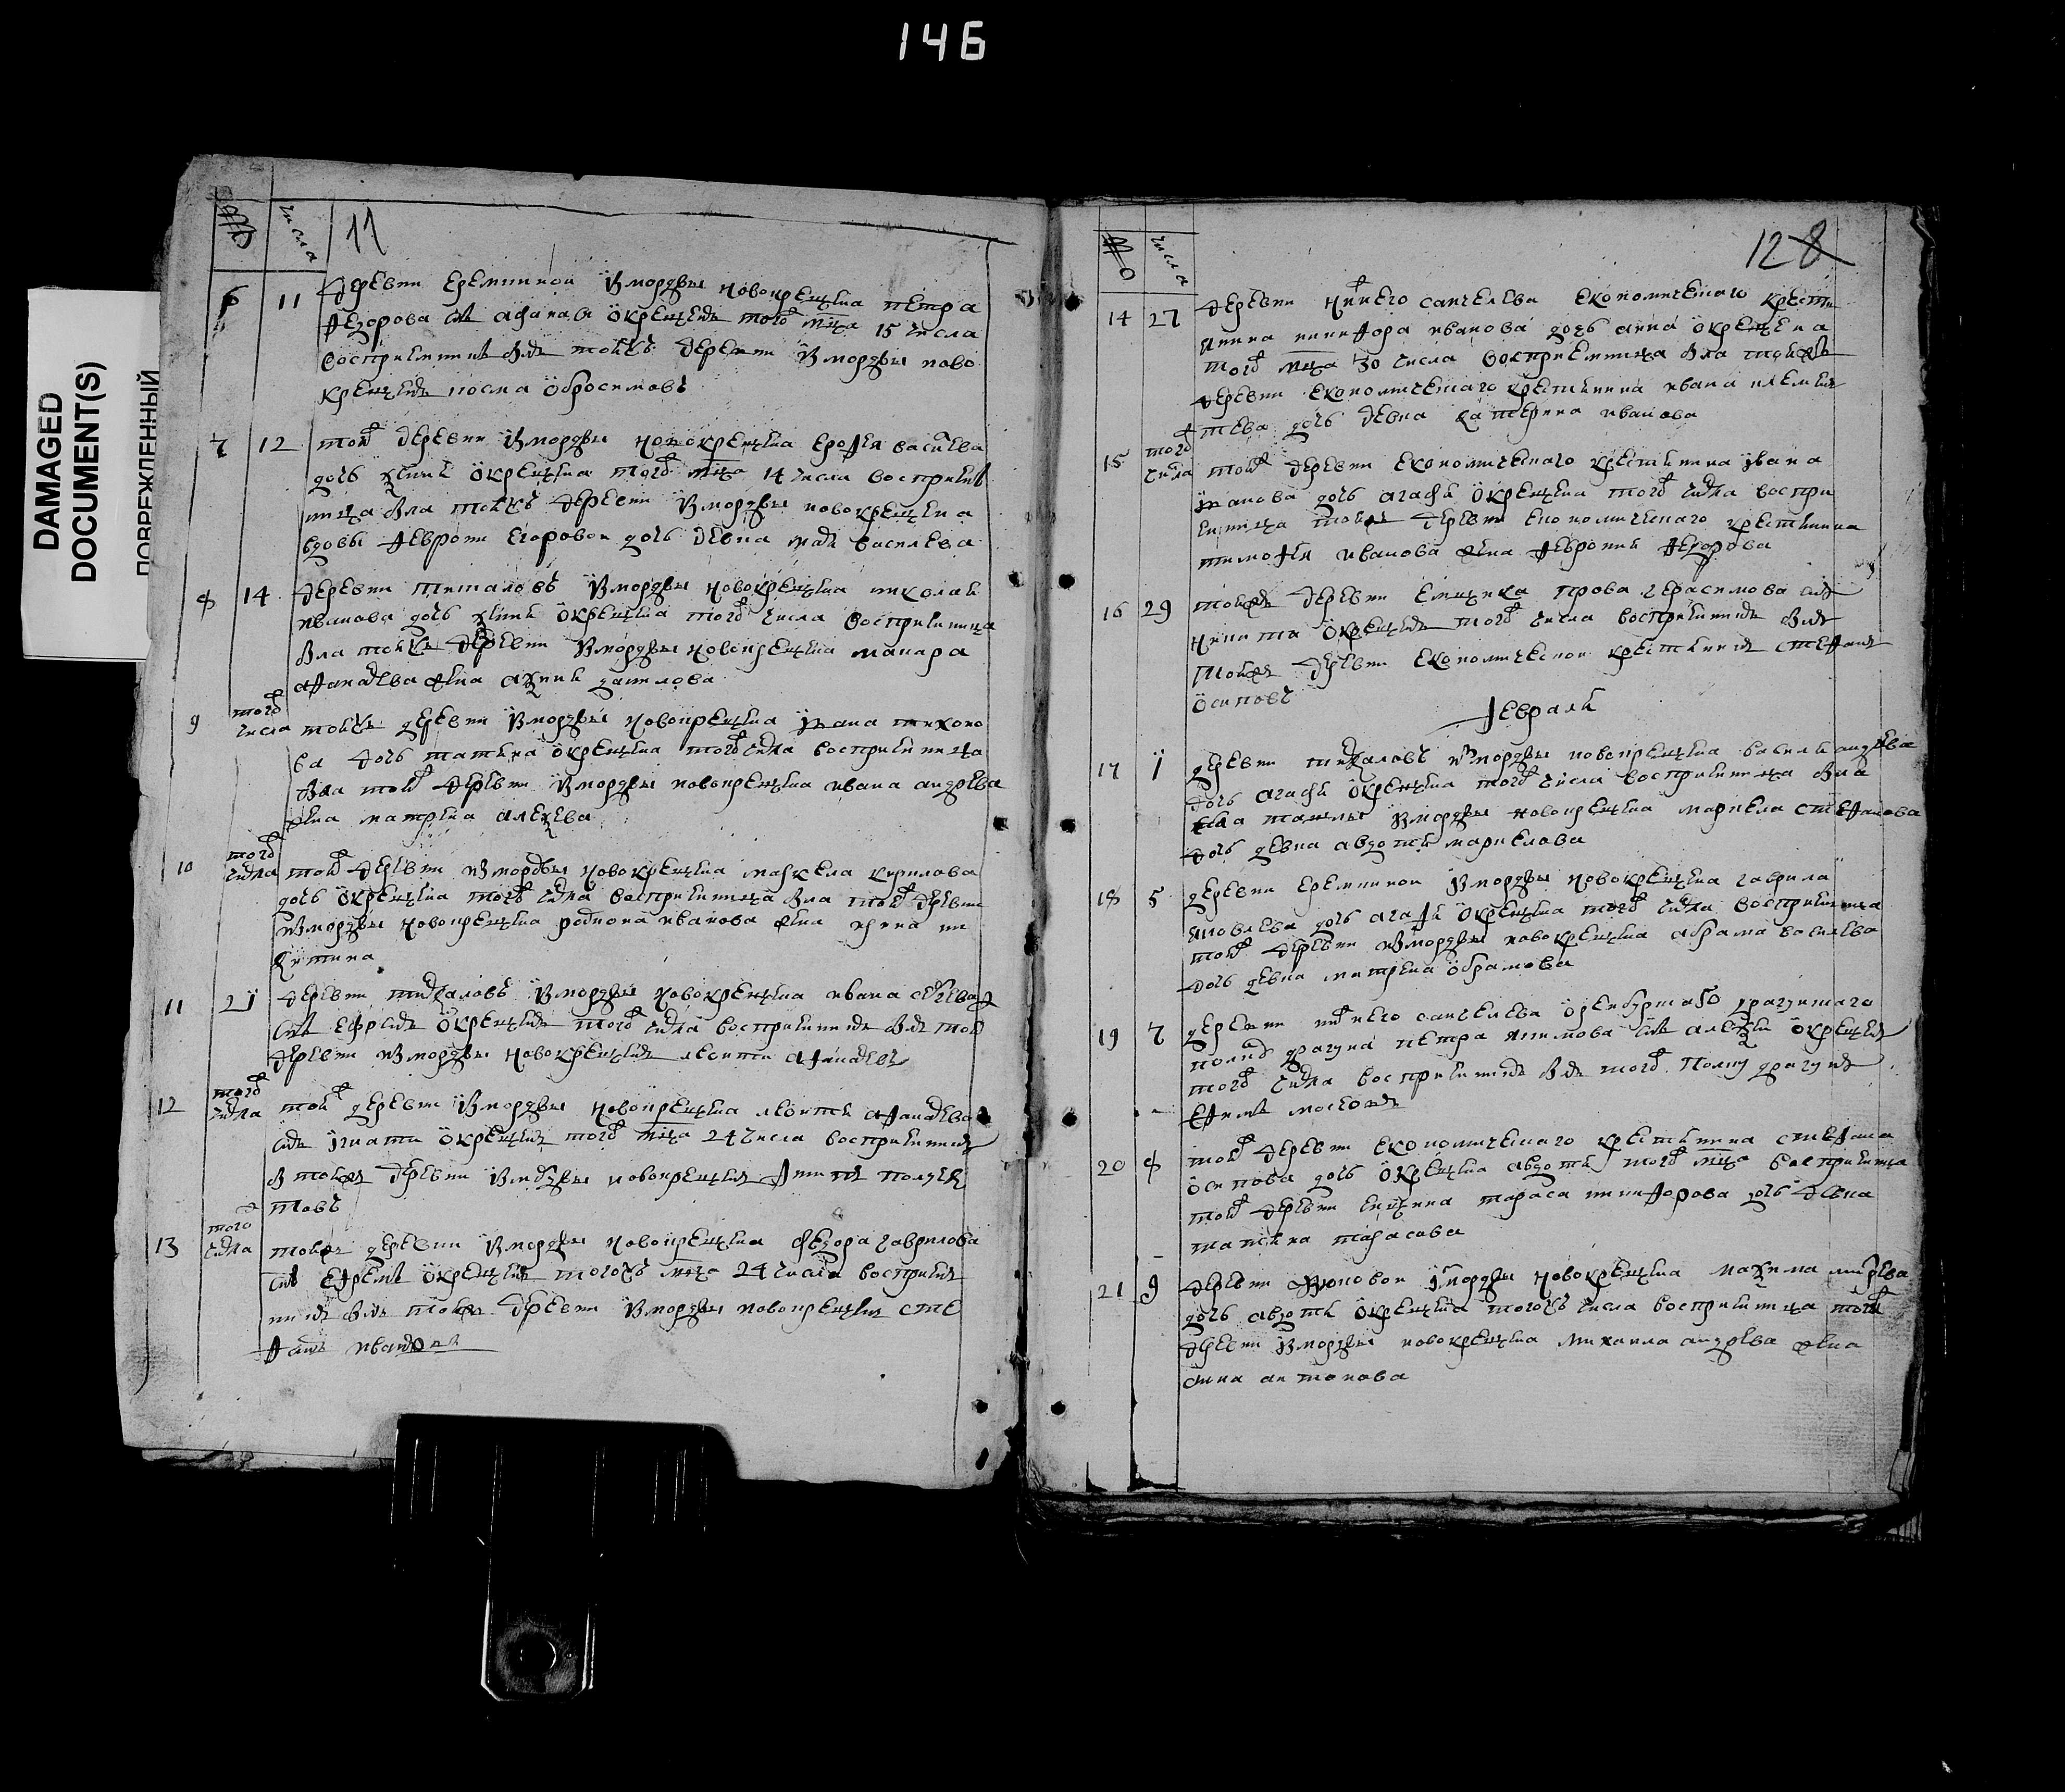 146
DAMAGED
DOCUMENT(S)
ПОВРЕЖДЕННЫЙ
№ числа 11
6 11 деревни Еремкиной измордвы новокрещена петра
Ѳедорова снъ афанаси окрещенъ тогож мца 15 числа
восприемникъ былъ тойжъ деревни измордвы ново
крещенъ
7 12 тойж деревни измордвы новокрещена ерофея василева
дочь окрещена тогож мца 14 числа восприем
ница была тойжъ деревни измордвы новокрещена
вдовы Ѳевроньи Егоровой дочь девка василева
8 14 деревни измордвы новокрещена николая
иванова дочь окрещена тогож числа восприемница
была тойжъ деревни измордвы новокрещена макара
аѲанасева жена данилова
9 тогож числа тойжъ деревни измордвы новокрещена ивана тихоно
ва дочь татьяна окрещена тогож числа восприемница
была тойж деревни измордвы новокрещена ивана андрѣева
жена матрена алексева
10 тогож числа тойж деревни измордвы новокрещена маркела кирилова
дочь окрещена тогож числа восприемница была тойж деревни
измордвы новокрещена родиона иванова жена ирина ни
китина
11 21 деревни измордвы новокрещена ивана
снъ окрещенъ тогож числа восприемникъ былъ той
деревни измордвы новокрещенъ леонти аѲанасевъ
12 тогож числа тойж деревни измордвы новокрещена леонтя аѲанасева
снъ игнати окрещенъ тогож мца 24 числа восприемникъ
тойже деревни измордвы новокрещенъ
товъ
13 того числа тойже деревни измордвы новокрещена Ѳедора гаврилова
снъ еѲремъ окрещенъ тогожъ мца 24 числа восприем
никъ былъ тойже деревни измордвы новокрещенъ сте
Ѳанъ ивановъ
№ числа 12 8
14 27 деревни санчелева економическаго крестья
нина никиѲора иванова дочь анна окрещена
тогож мца 30 числа восприемница была тойже
деревни економическаго крестьянина ивана
дочь девка катерина иванова
15 тогож числа тойж деревни економическаго крестьянина ивана
иванова дочь агафья окрещена тогож числа воспри
емница тойже деревни економическаго крестьянина
тимоѲея иванова жена Ѳевронья Ѳедорова
16 29 тойже деревни ямщика прова герасимова снъ
никита окрещенъ тогож числа восприемникъ былъ
тойже деревни економической крестьянинъ стеѲанъ
осиповъ
Ѳевраля
17 1 деревни измордвы новокрещена василя андрѣева
дочь агафья окрещена тогож числа восприемница была
измордвы новокрещена маркела стеѲанова
дочь девка авдотья маркелова
18 5 деревни еремкиной измордвы новокрещена гаврила
яковлева дочь агаѲья окрещена тогож числа восприемница
тойж деревни измордвы новокрещена абрама василева
дочь девка матрена обрамова
19 7 деревни санчелева оренбурскаго драгунскаго
полку драгуна петра якимова снъ алексѣй окрещенъ
тогож числа восприемникъ былъ тогож полку драгунъ
еѲимъ
20 8 тойж деревни економическаго крестьянина стеѲана
осипова дочь окрещена авдотья тогож мца восприемница
тойж деревни ямщика тараса никиѲорова дочь девка
татьяна тарасова
21 9 деревни измордвы новокрещена максима
дочь авдотья окрещена тогожъ числа восприемница тойж
деревни измордвы новокрещена михаила андрѣева жена
анна антонова